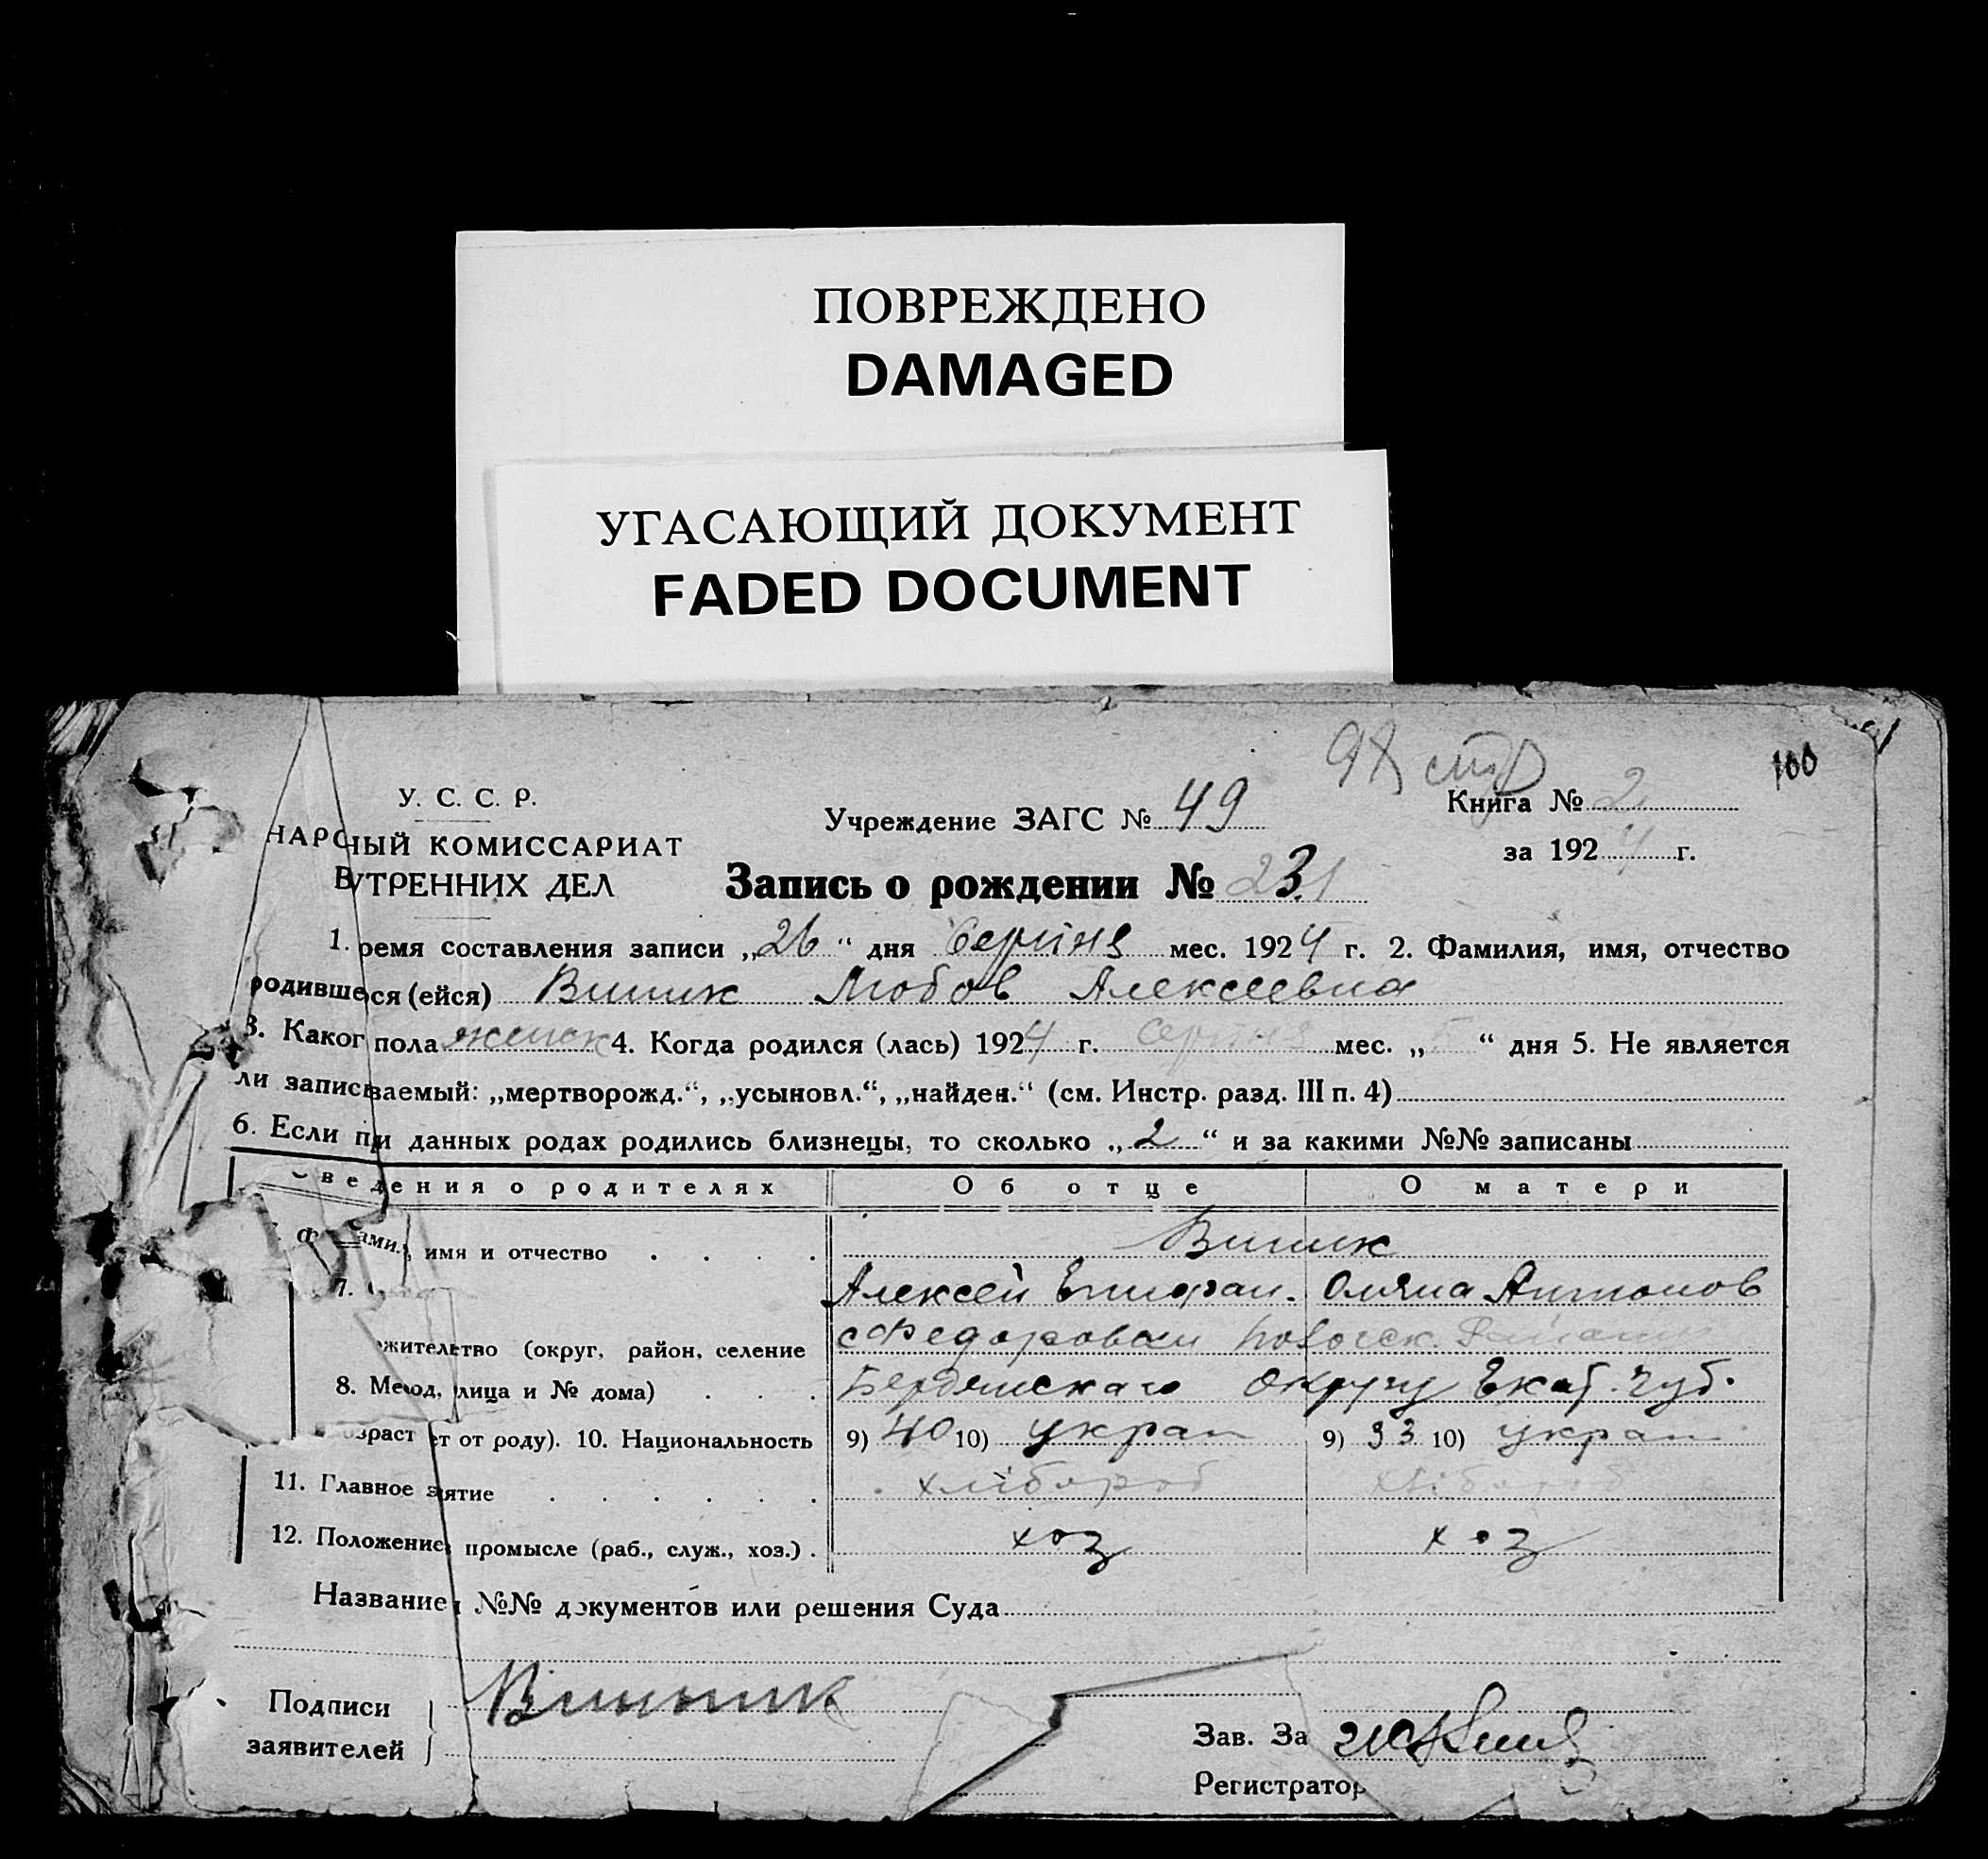 ПОВРЕЖДЕНО
DAMAGED
УГАСАЮЩИЙ ДОКУМЕНТ
FADED DOCUMENT
стр
100
У. С. С. Р.
Учреждение ЗАГС № 49
Книга № 2
НАРОДНЫЙ КОМИССАРИАТ
за 1924 г.
ВНУТРЕННИХ ДЕЛ
Запись о рождении № 231
1. ремя составления записи „26“ дня Серпня мес. 1924 г. 2. Фамилия, имя, отчество
родившегося (ейся) Виник Любов Алексеевна
3. Какого пола женск 4. Когда родился (лась) 1924 г. Серпня мес. „ “ дня 5. Не является
ли записываемый: „мертворожд.“, „усыновл.“, „найден.“ (см. Инстр. разд. III п. 4)
6. Если при данных родах родились близнецы, то сколько „2“ и за какими №№ записаны
Сведения о родителях Об отце О матери
имя и отчество Виник
7. Алексей Епифан. Оляна Антонов
жительство (округ, район, селение с Федоровки Новоск.
8. Ме од, лица и № дома) Бердянскаго Округу Екат. Губ.
озраст ет от роду). 10. Национальность 9) 40 10) украп 9) 33 10) украп
11. Главное занятие хлібороб хлібороб
12. Положение промысле (раб., служ., хоз.) хоз хоз
Название №№ документов или решения Суда
Подписи Винник
заявителей
Зав. За
Регистратор